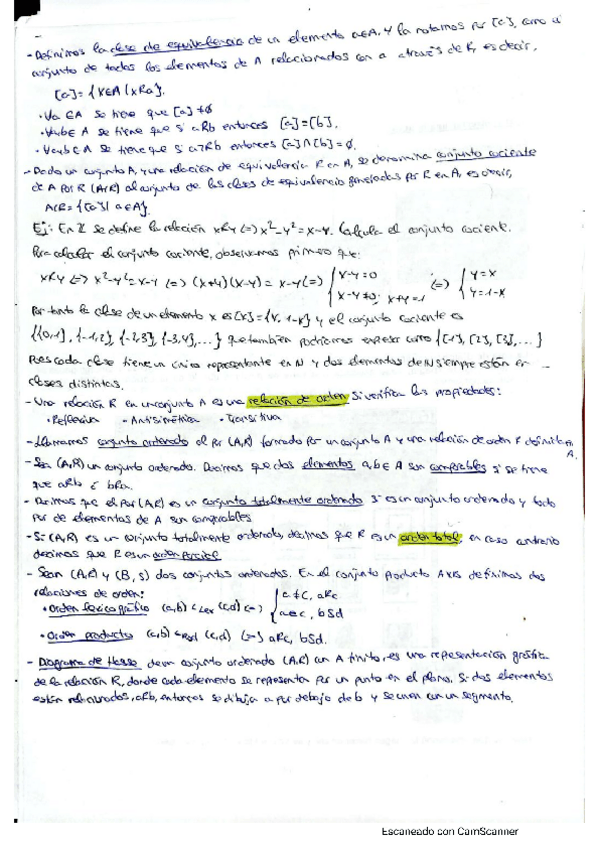 - Definimos la clase de equivalencia de un elemento a∈A, y la notamos por [a], como al
conjunto de todos los elementos de A relacionados con a a través de R, es decir,
[a]={x∈A | xRa}.
· ∀a∈A se tiene que [a]≠∅
· ∀a,b∈A se tiene que si aRb entonces [a]=[b].
· ∀a,b∈A se tiene que si a¬Rb entonces [a]∩[b]=∅
- Dado un conjunto A, y una relación de equivalencia R en A, se denomina conjunto cociente
de A por R (A/R) al conjunto de las clases de equivalencia generadas por R en A, es decir,
A/R={[a] | a∈A}.
Ej: En ℤ se define la relación xRy (=) x²-y²=x-y. Calcula el conjunto cociente.
Para calcular el conjunto cociente, observamos primero que:
xRy (=) x²-y²=x-y (=) (x+y)(x-y)=x-y (=) { x-y=0 (=) { y=x
x-y≠0; x+y=1 y=1-x
Por tanto la clase de un elemento x es [x]={x, 1-x} y el conjunto cociente es
{{0,1}, {-1,2}, {-2,3}, {-3,4},...} que también podríamos expresar como {[1], [2], [3],...}
Pues cada clase tiene un único representante en N y dos elementos de N siempre están en
clases distintas.
- Una relación R en un conjunto A es una relación de orden si verifica las propiedades:
· Reflexiva · Antisimétrica · Transitiva
- Llamamos conjunto ordenado al par (A,R) formado por un conjunto A y una relación de orden R definida en
A.
- Sea (A,R) un conjunto ordenado. Decimos que dos elementos a,b∈A son comparables si se tiene
que aRb ó bRa.
- Decimos que el par (A,R) es un conjunto totalmente ordenado si es un conjunto ordenado y todo
par de elementos de A son comparables
- Si (A,R) es un conjunto totalmente ordenado, decimos que R es un orden total, en caso contrario
decimos que R es un orden parcial
- Sean (A,R) y (B,S) dos conjuntos ordenados. En el conjunto producto AxB definimos dos
relaciones de orden:
· Orden lexicográfico (a,b) ≤Lex (c,d) (=) { a≠c, aRc
a=c, bSd
· Orden producto (a,b) ≤Prod (c,d) (=) aRc, bSd.
- Diagrama de Hasse de un conjunto ordenado (A,R) con A finito, es una representación gráfica
de la relación R, donde cada elemento se representa por un punto en el plano. Si dos elementos
están relacionados, aRb, entonces se dibuja a por debajo de b y se unen con un segmento.
Escaneado con CamScanner